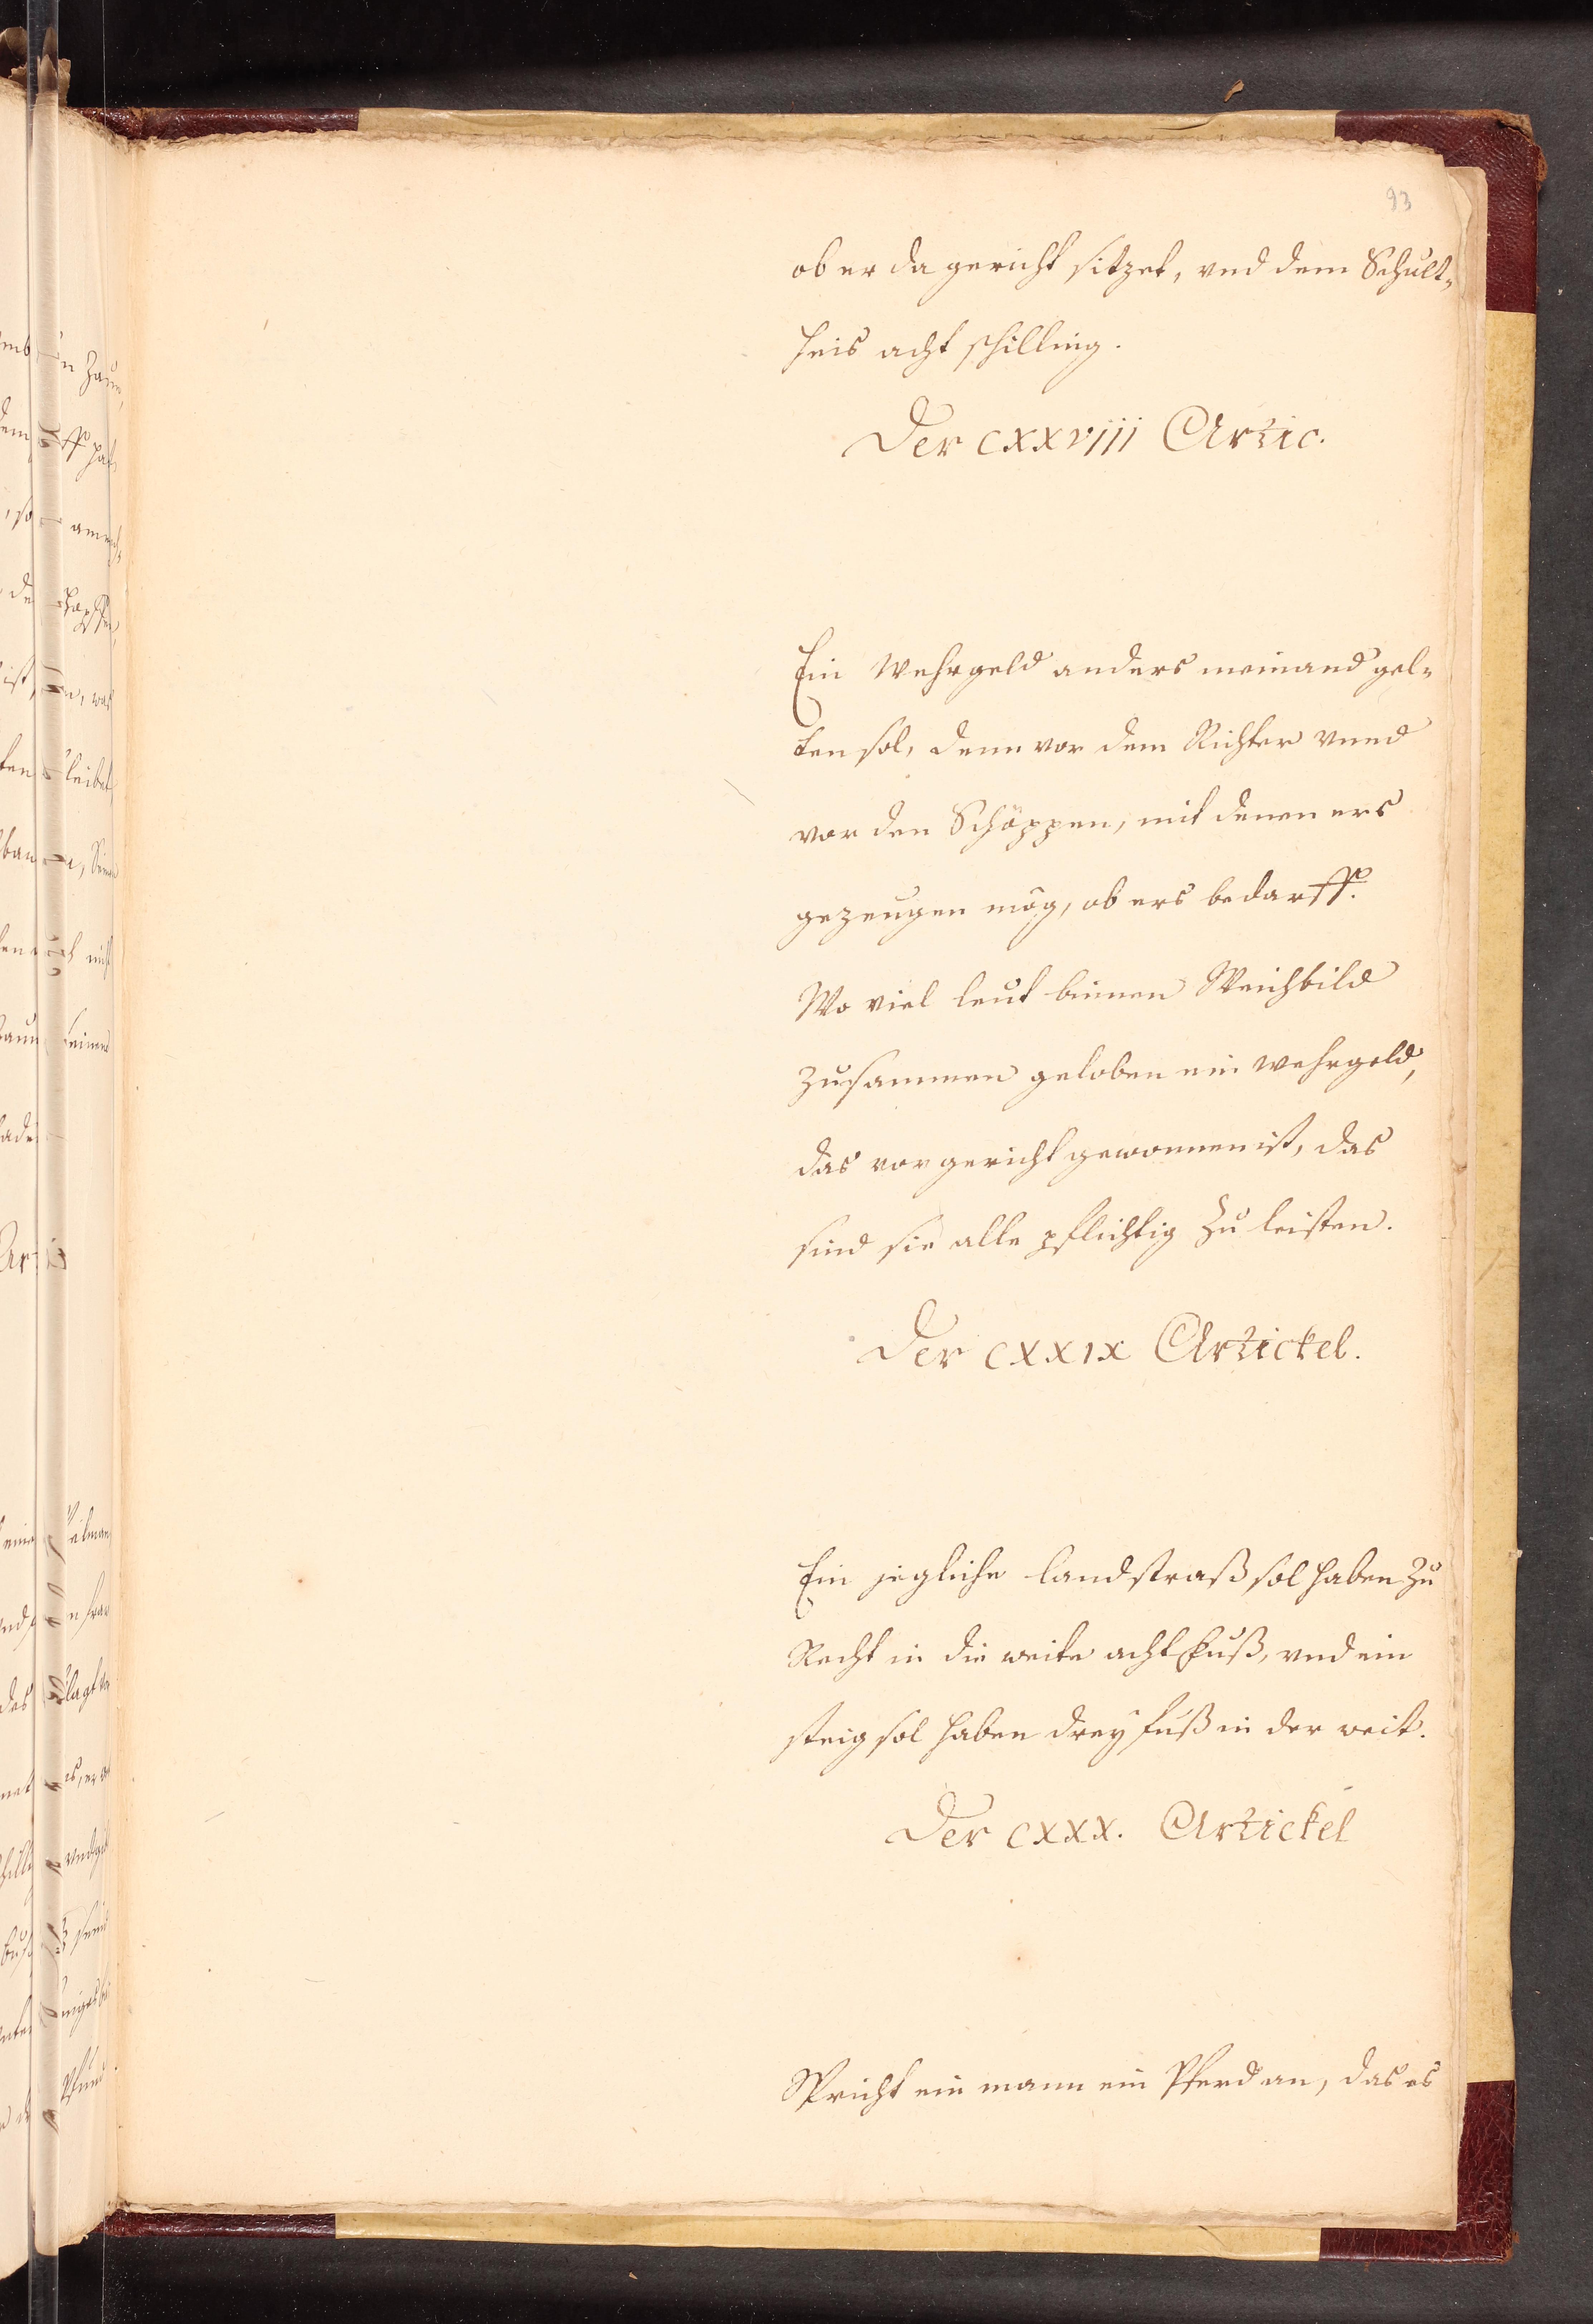 93
ob er da gericht sitzet, vnd dem Schult„
heis acht schilling.
Der CXXVIII Artic.
Ein Wehrgeld anders niemand gel„
ten sol, denn vor dem Richter vnnd
vor den Schöppen, mit denen ers
gezeugen mög, ob ers bedarff.
Wo viel leut binnen Weichbild
zusammen geloben ein wehrgeld,
das vor gericht gewonnen ist, das
sind sie alle pflichtig zu leisten.
Der CXXIX Artickel.
Ein jegliche landstraß sol haben zu
Recht in die weite acht Fuß, vnd ein
steig sol haben drey fuß in der weit.
Der CXXX. Artickel
Spricht ein mann ein Pferd an, das es